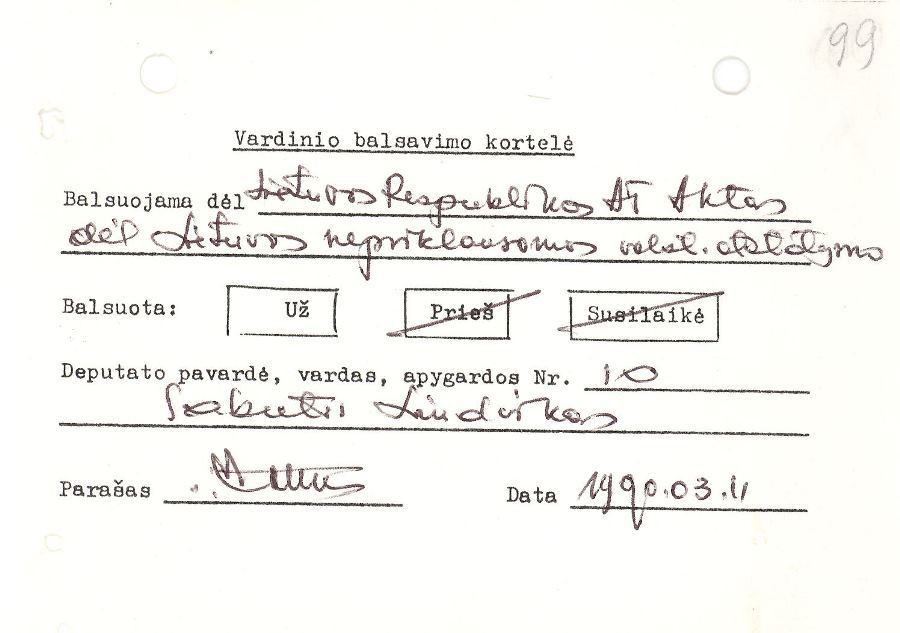 99
Vardinio balsavimo kortelė
Balsuojama dėl Lietuvos Respublikos AT Aktas
dėl Lietuvos nepriklausomos valst. atstatymo
Balsuota: Už Prieš Susilaikė
Deputato pavardė, vardas, apygardos Nr. 10
Sabutis Liudvikas
Parašas
Data 1990.03.11